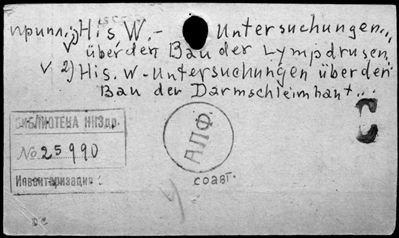 припл. 1) His W. - Untersuchungen...
über den Bau der Lympdrusen
v 2) His. W - Untersuchungen über den
Bau der Darmschleimhant...
БИБЛИОТЕКА
№ 25990
Инвентаризация
АПФ.
соавт.